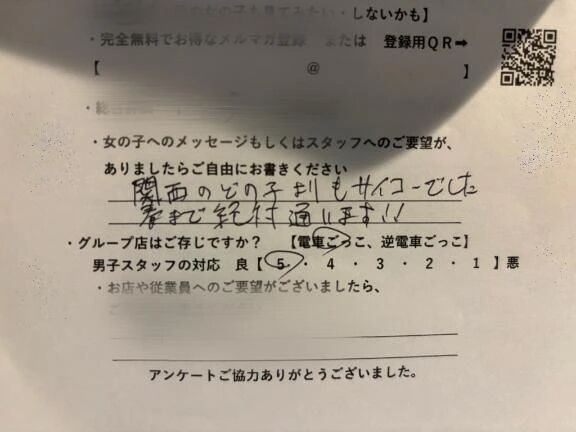 の女の子も見てみたい・しないかも】
・完全無料でお得なメルマガ登録 または 登録用QR➡
【 @ 】
・女の子へのメッセージもしくはスタッフへのご要望が、
ありましたらご自由にお書きください
関西のどの子よりもサイコーでした
春まで絶対通います!!
・グループ店はご存じですか? 【電車ごっこ、逆電車ごっこ】
男子スタッフの対応 良【 5 ・ 4 ・ 3 ・ 2 ・ 1 】悪
・お店や従業員へのご要望がございましたら、
アンケートご協力ありがとうございました。